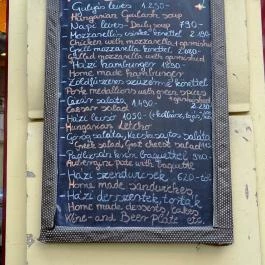 - Gulyás leves 1.250-
Hungarian Goulash soup
- Napi leves - Daily soup 790-
- Mozzarellás csirke körettel 2.190
Chicken with mozzarella + garnished
- Grill mozzarella körettel
Grilled mozzarella with garnished
- Házi hamburger 1850-
Home made hamburger
- Zöldfűszeres körettel
Pork medallions with green spices
+ garnished
- Cézár saláta 1.490-
Caesar salad
- Házi lecsó 1050-
- Hungarian Letcho
- Görög saláta, kecskesajtos saláta
- Greek salad, Goat cheese salad
- Padlizsán krém baguettel
Aubergine paté with baguette
- Házi szendvicsek 620-
Home made sandwiches
- Házi desszertek, torták
Home made desserts, cakes
Wine- and Beer plate etc.